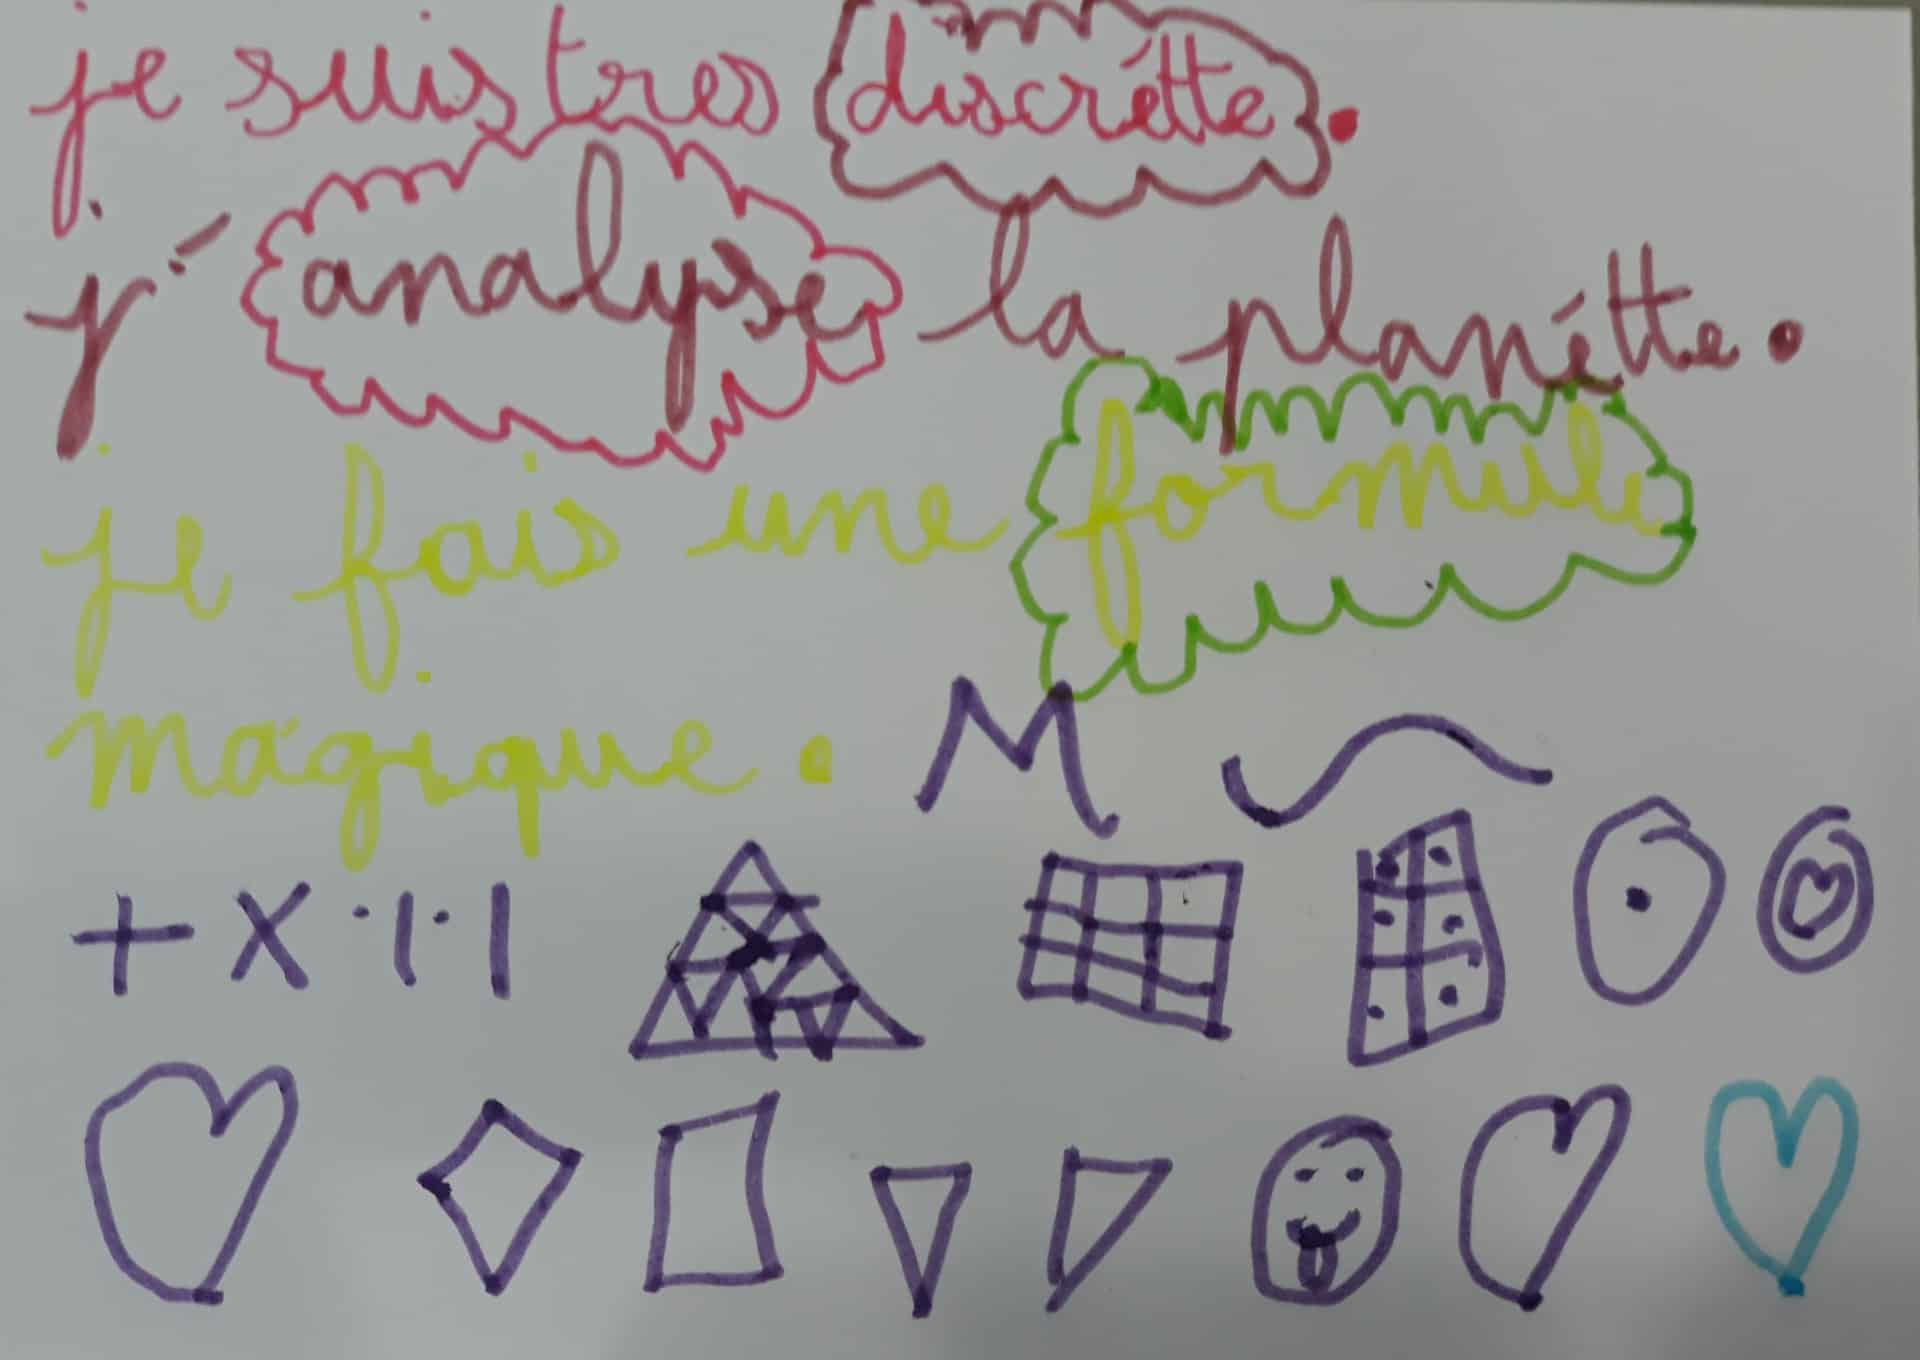 je suis tres discrétte.
j'analyse la planétte.
je fais une formule
magique. M
+ x • | • |